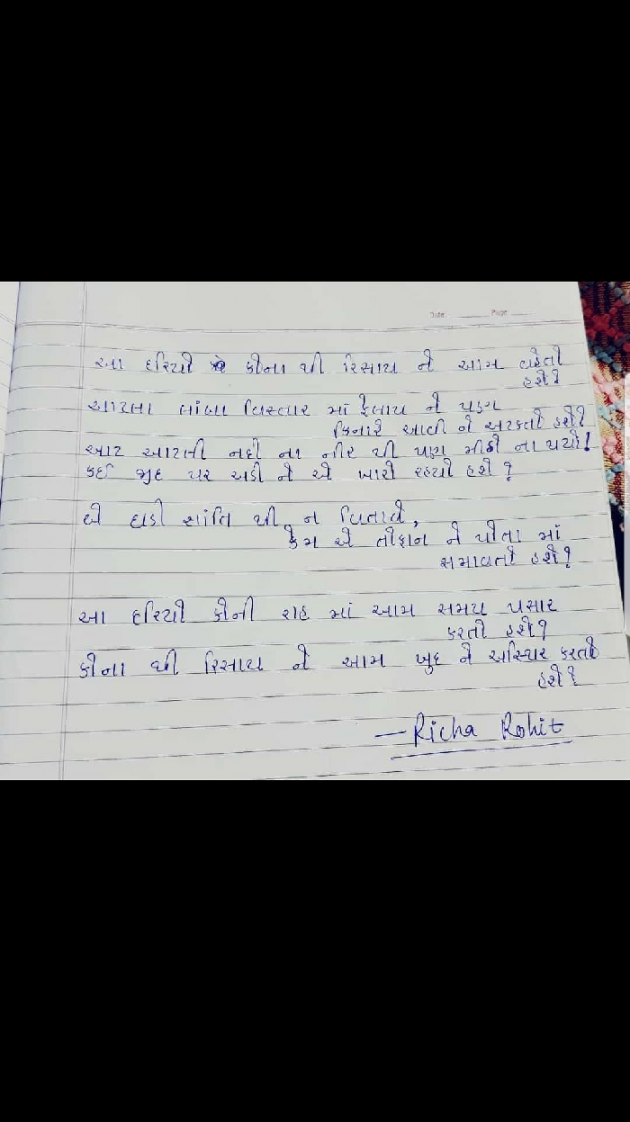 Date Page
આ દરિયો કોના થી રિસાય ને આમ વહેતો
હશે?
આટલા લાંબા વિસ્તાર માં ફેલાય ને પણ
કિનારે આવી ને અટકતો હશે?
આટ આટલી નદી ના નીર થી પણ મીઠો ના થયો!
કઈ જીદ પર અડી ને એ ખારો રહ્યો હશે?
બે ઘડી શાંતિ થી ન વિતાવે,
કેમ એ તોફાન ને પોતા માં
સમાવતો હશે?
આ દરિયો કોની રાહ માં આમ સમય પસાર
કરતો હશે?
કોના થી રિસાય ને આમ ખુદ ને અસ્થિર કરતો
હશે?
—Richa Rohit